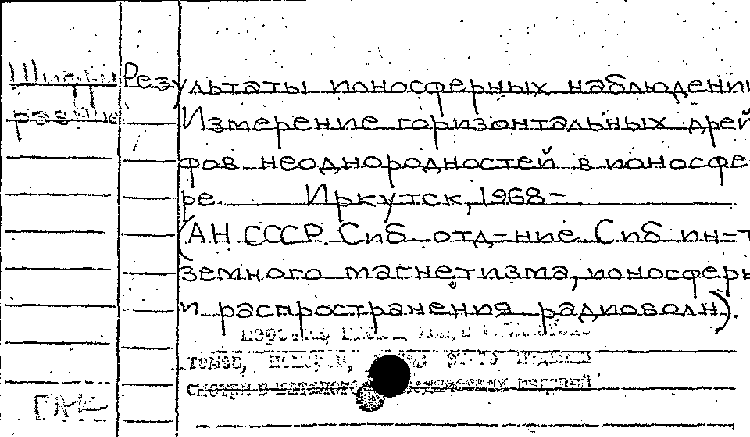 Шифры Результаты ионосферных наблюдений
разные Измерение горизонтальных дрей
фов неоднородностей в ионосфе
ре. Иркутск, 1968-
(АН СССР. Сиб. отд-ние. Сиб ин-т
земного магнетизма, ионосферы
и распространения радиоволн).
смотри в каталоге